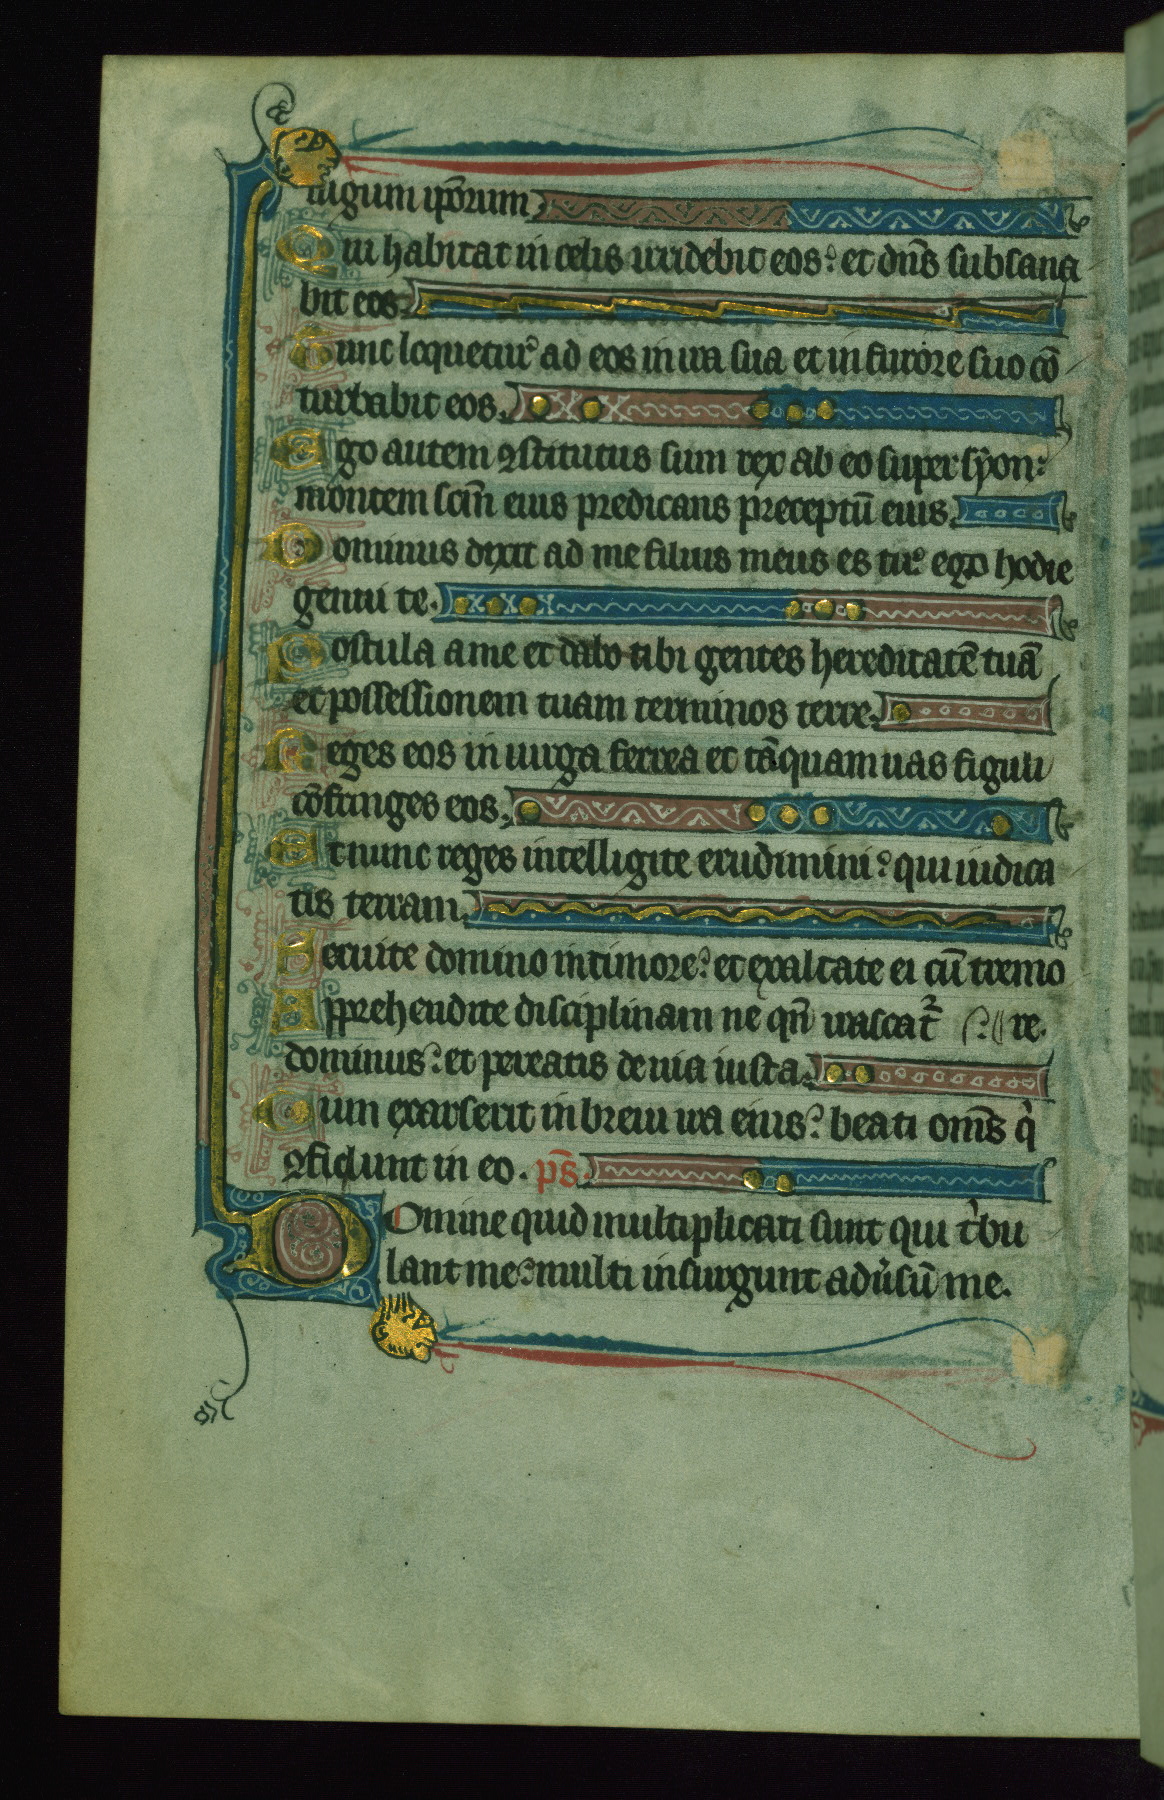 iugum ip̄orum
Qui habitat in celis irridebit eos: et dn̄s subsanna
bit eos.
Tunc loquetur ad eos in ira sua et in furore suo cō
turbabit eos.
Ego autem ꝯstitutus sum rex ab eo super syon:
montem sc̄m eius predicans preceptū eius.
Dominus dixit ad me filius meus es tu: ego hodie
genui te.
Postula a me et dabo tibi gentes hereditatē tuā
et possessionem tuam terminos terre.
Reges eos in uirga ferrea et tāquam uas figuli
cōfringes eos.
Et nunc reges intelligite erudimini: qui iudica
tis terram.
Seruite domino in timore: et exaltate ei cū tremo
Apprehendite disciplinam ne qn̄ irascat᷑ re.
dominus: et pereatis de uia iusta.
Cum exarserit in breui ira eius: beati om̄s qi
ꝯfidunt in eo. p̄s.
Domine quid multiplicati sunt qui tⁱbu
lant me: multi insurgunt adu̾sū me.